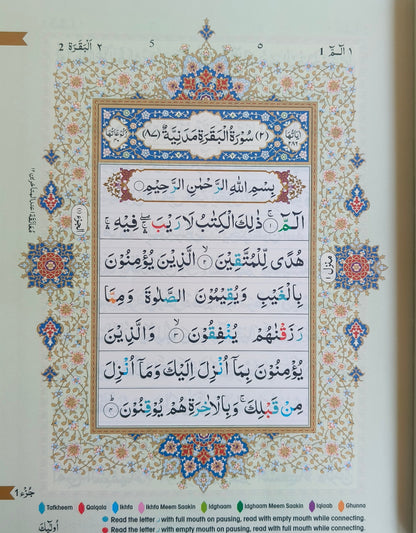 ٢ اَلْبَقَرَة 2
5
٥
١ الٓمّٓ 1
(٢) سُوْرَةُ الْبَقَرَةِ مَدَنِيَّةٌ (٨٧)
بِسْمِ اللّٰهِ الرَّحْمٰنِ الرَّحِيْمِ
الٓمّٓ ۚ‏ ١ ذٰلِكَ الْكِتٰبُ لَا رَيْبَ ۛۖ فِيْهِ ۛۚ
هُدًى لِّلْمُتَّقِيْنَ ۙ‏ ٢ الَّذِيْنَ يُؤْمِنُوْنَ
بِالْغَيْبِ وَيُقِيْمُوْنَ الصَّلٰوةَ وَمِمَّا
رَزَقْنٰهُمْ يُنْفِقُوْنَ ۙ‏ ٣ وَالَّذِيْنَ
يُؤْمِنُوْنَ بِمَآ اُنْزِلَ اِلَيْكَ وَمَآ اُنْزِلَ
مِنْ قَبْلِكَ ۚ وَبِالْاٰخِرَةِ هُمْ يُوْقِنُوْنَ ؕ‏ ٤
مَنْزِل ١
جُزْء 1
Tafkheem Qalqala Ikhfa Ikhfa Meem Saakin Idghaam Idghaam Meem Saakin Iqlaab Ghunna
اُولٰٓئِكَ
Read the letter ر with full mouth on pausing, read with empty mouth while connecting.
Read the letter ر with empty mouth on pausing, read with full mouth while connecting.